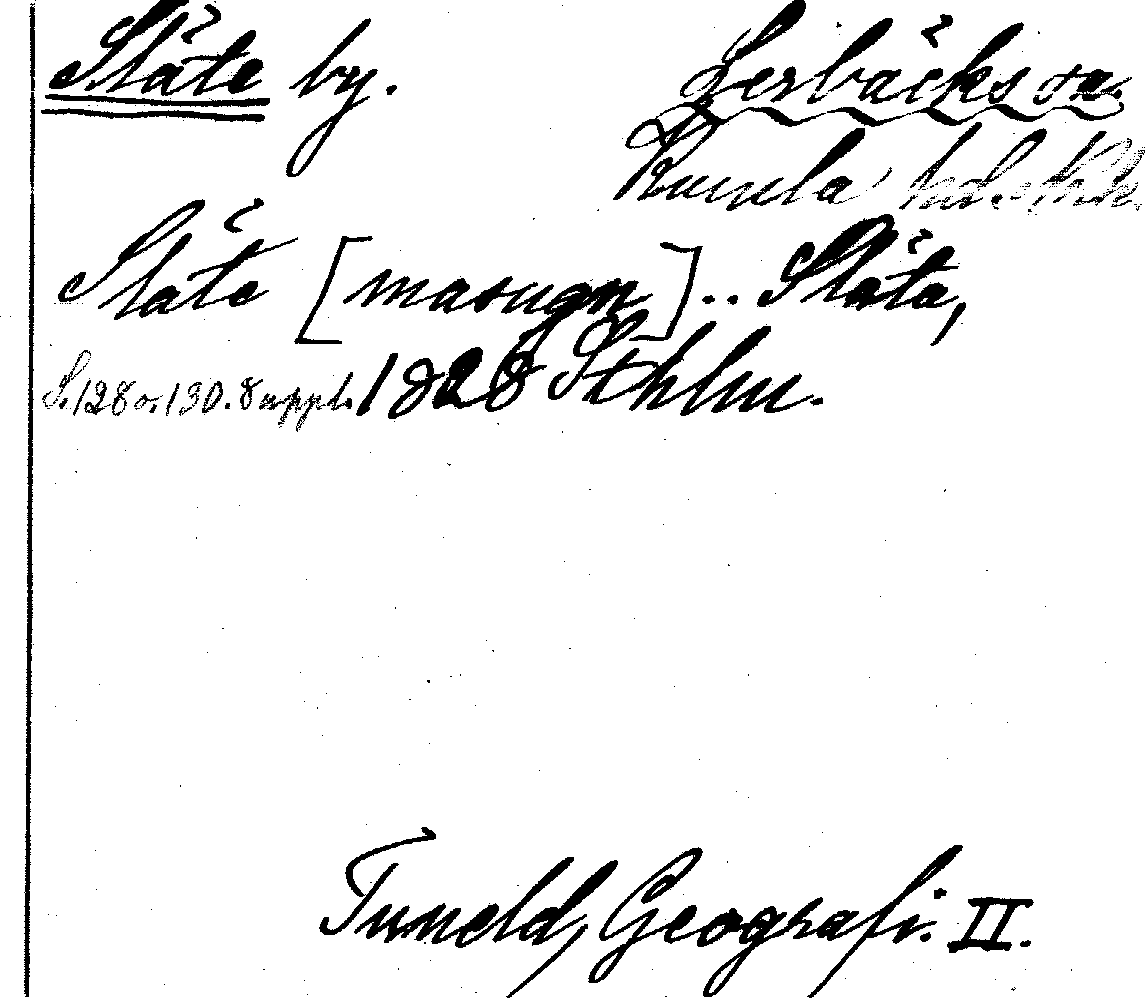 Släte by. Lerbäcks sn.
Kumla hd.
Släte [masugn].. Släta,
S. 128 o. 130. 8 uppl. 1828 Sthlm.
Tuneld, Geografi. II.